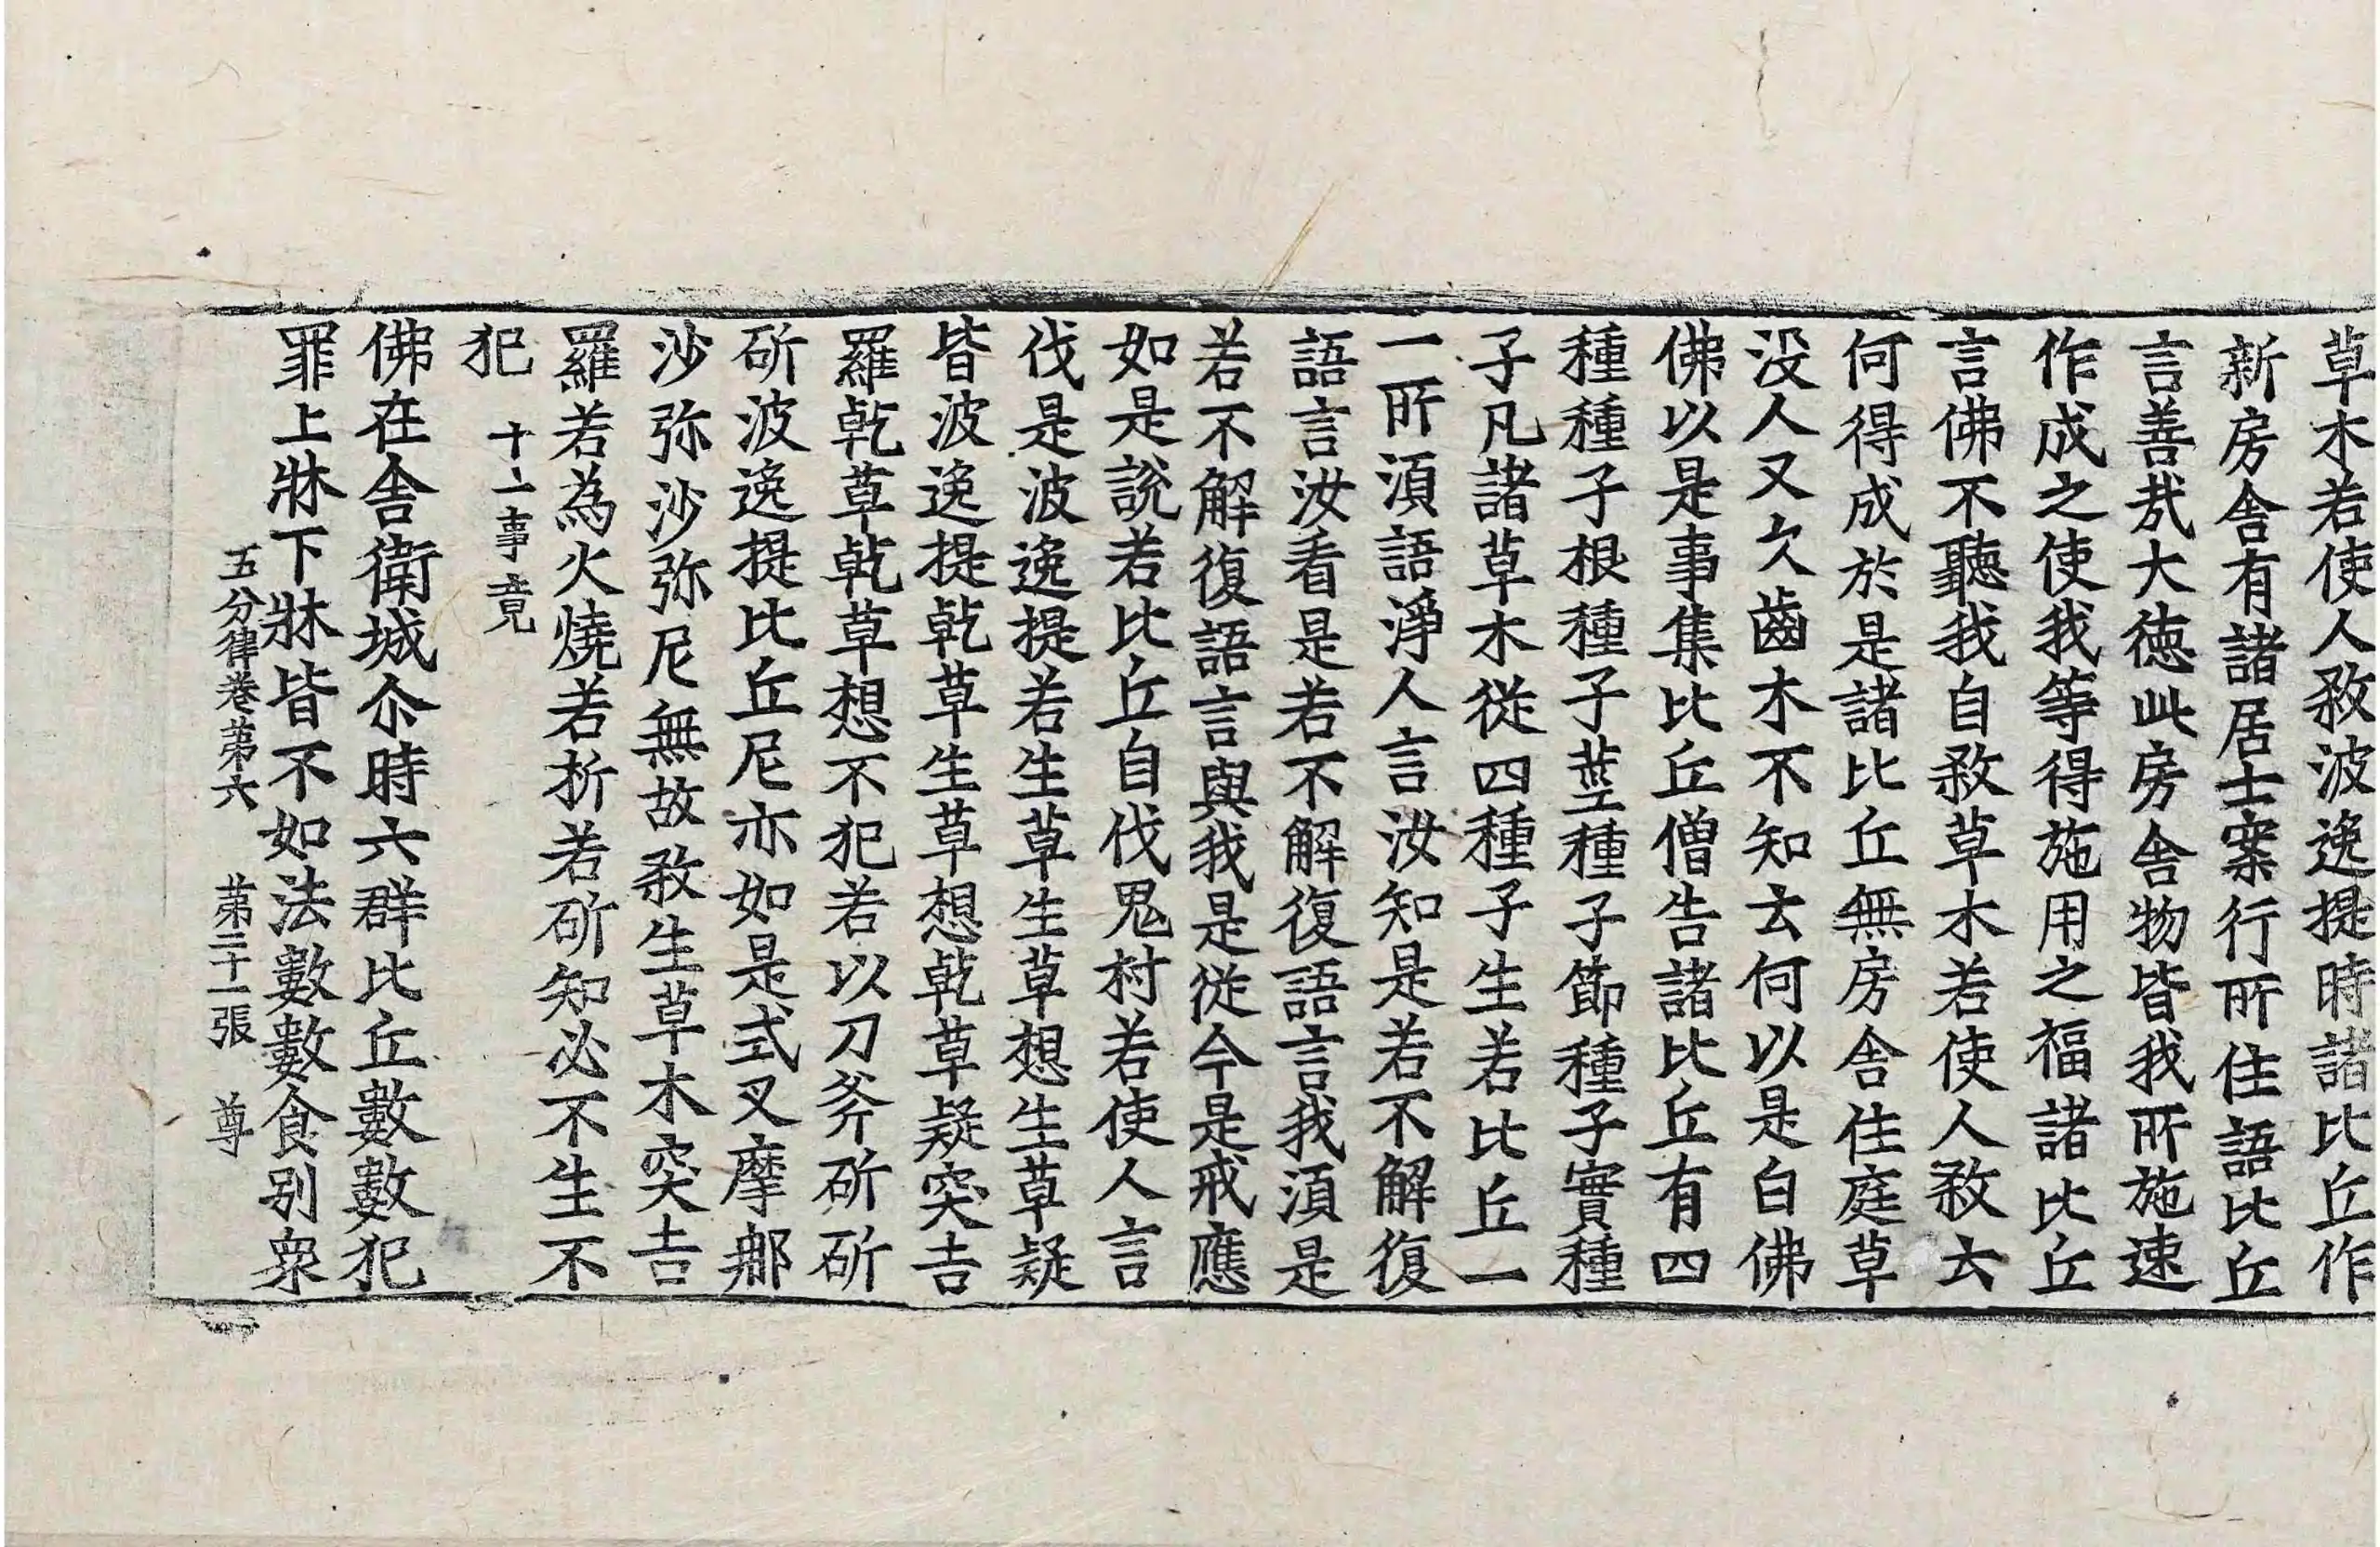 草木若使人煞波逸提時諸比丘作
新房舍有諸居士案行所住語比丘
言善㢤大徳此房舍物皆我所施速
作成之使我等得施用之福諸比丘
言佛不聽我自煞草木若使人煞云
何得成於是諸比丘無房舍住庭草
没人又欠齒木不知云何以是白佛
佛以是事集比丘僧告諸比丘有四
種種子根種子莖種子節種子實種
子凡諸草木從四種子生若比丘一
一所湏語淨人言汝知是若不解復
語言汝看是若不解復語言我湏是
若不解復語言與我是從今是戒應
如是說若比丘自伐鬼村若使人言
伐是波逸提若生草生草想生草疑
皆波逸提乾草生草想乾草疑突吉
羅乾草乾草想不犯若以刀斧斫斫
斫波逸提比丘尼亦如是式叉摩那
沙弥沙弥尼無故煞生草木突吉
羅若為火燒若析若斫知必不生不
犯 十一事竟
佛在舍衛城尒時六群比丘數數犯
罪上牀下牀皆不如法數數食别衆
五分律卷苐六 苐二十一張 尊